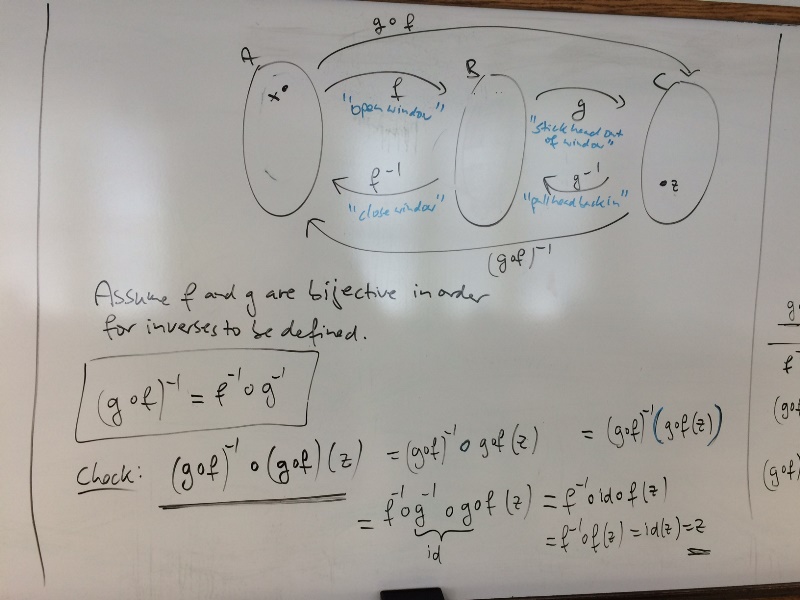 g∘f
A
B
C
x
f
"open window"
g
"stick head out
of window"
f⁻¹
"close window"
g⁻¹
"pull head back in"
z
(g∘f)⁻¹
Assume f and g are bijective in order
for inverses to be defined.
(g∘f)⁻¹ = f⁻¹∘g⁻¹
Check: (g∘f)⁻¹∘(g∘f)(z) = (g∘f)⁻¹∘g∘f(z) = (g∘f)⁻¹(g∘f(z))
= f⁻¹∘g⁻¹∘g∘f(z) = f⁻¹∘id∘f(z)
id
= f⁻¹∘f(z) = id(z) = z